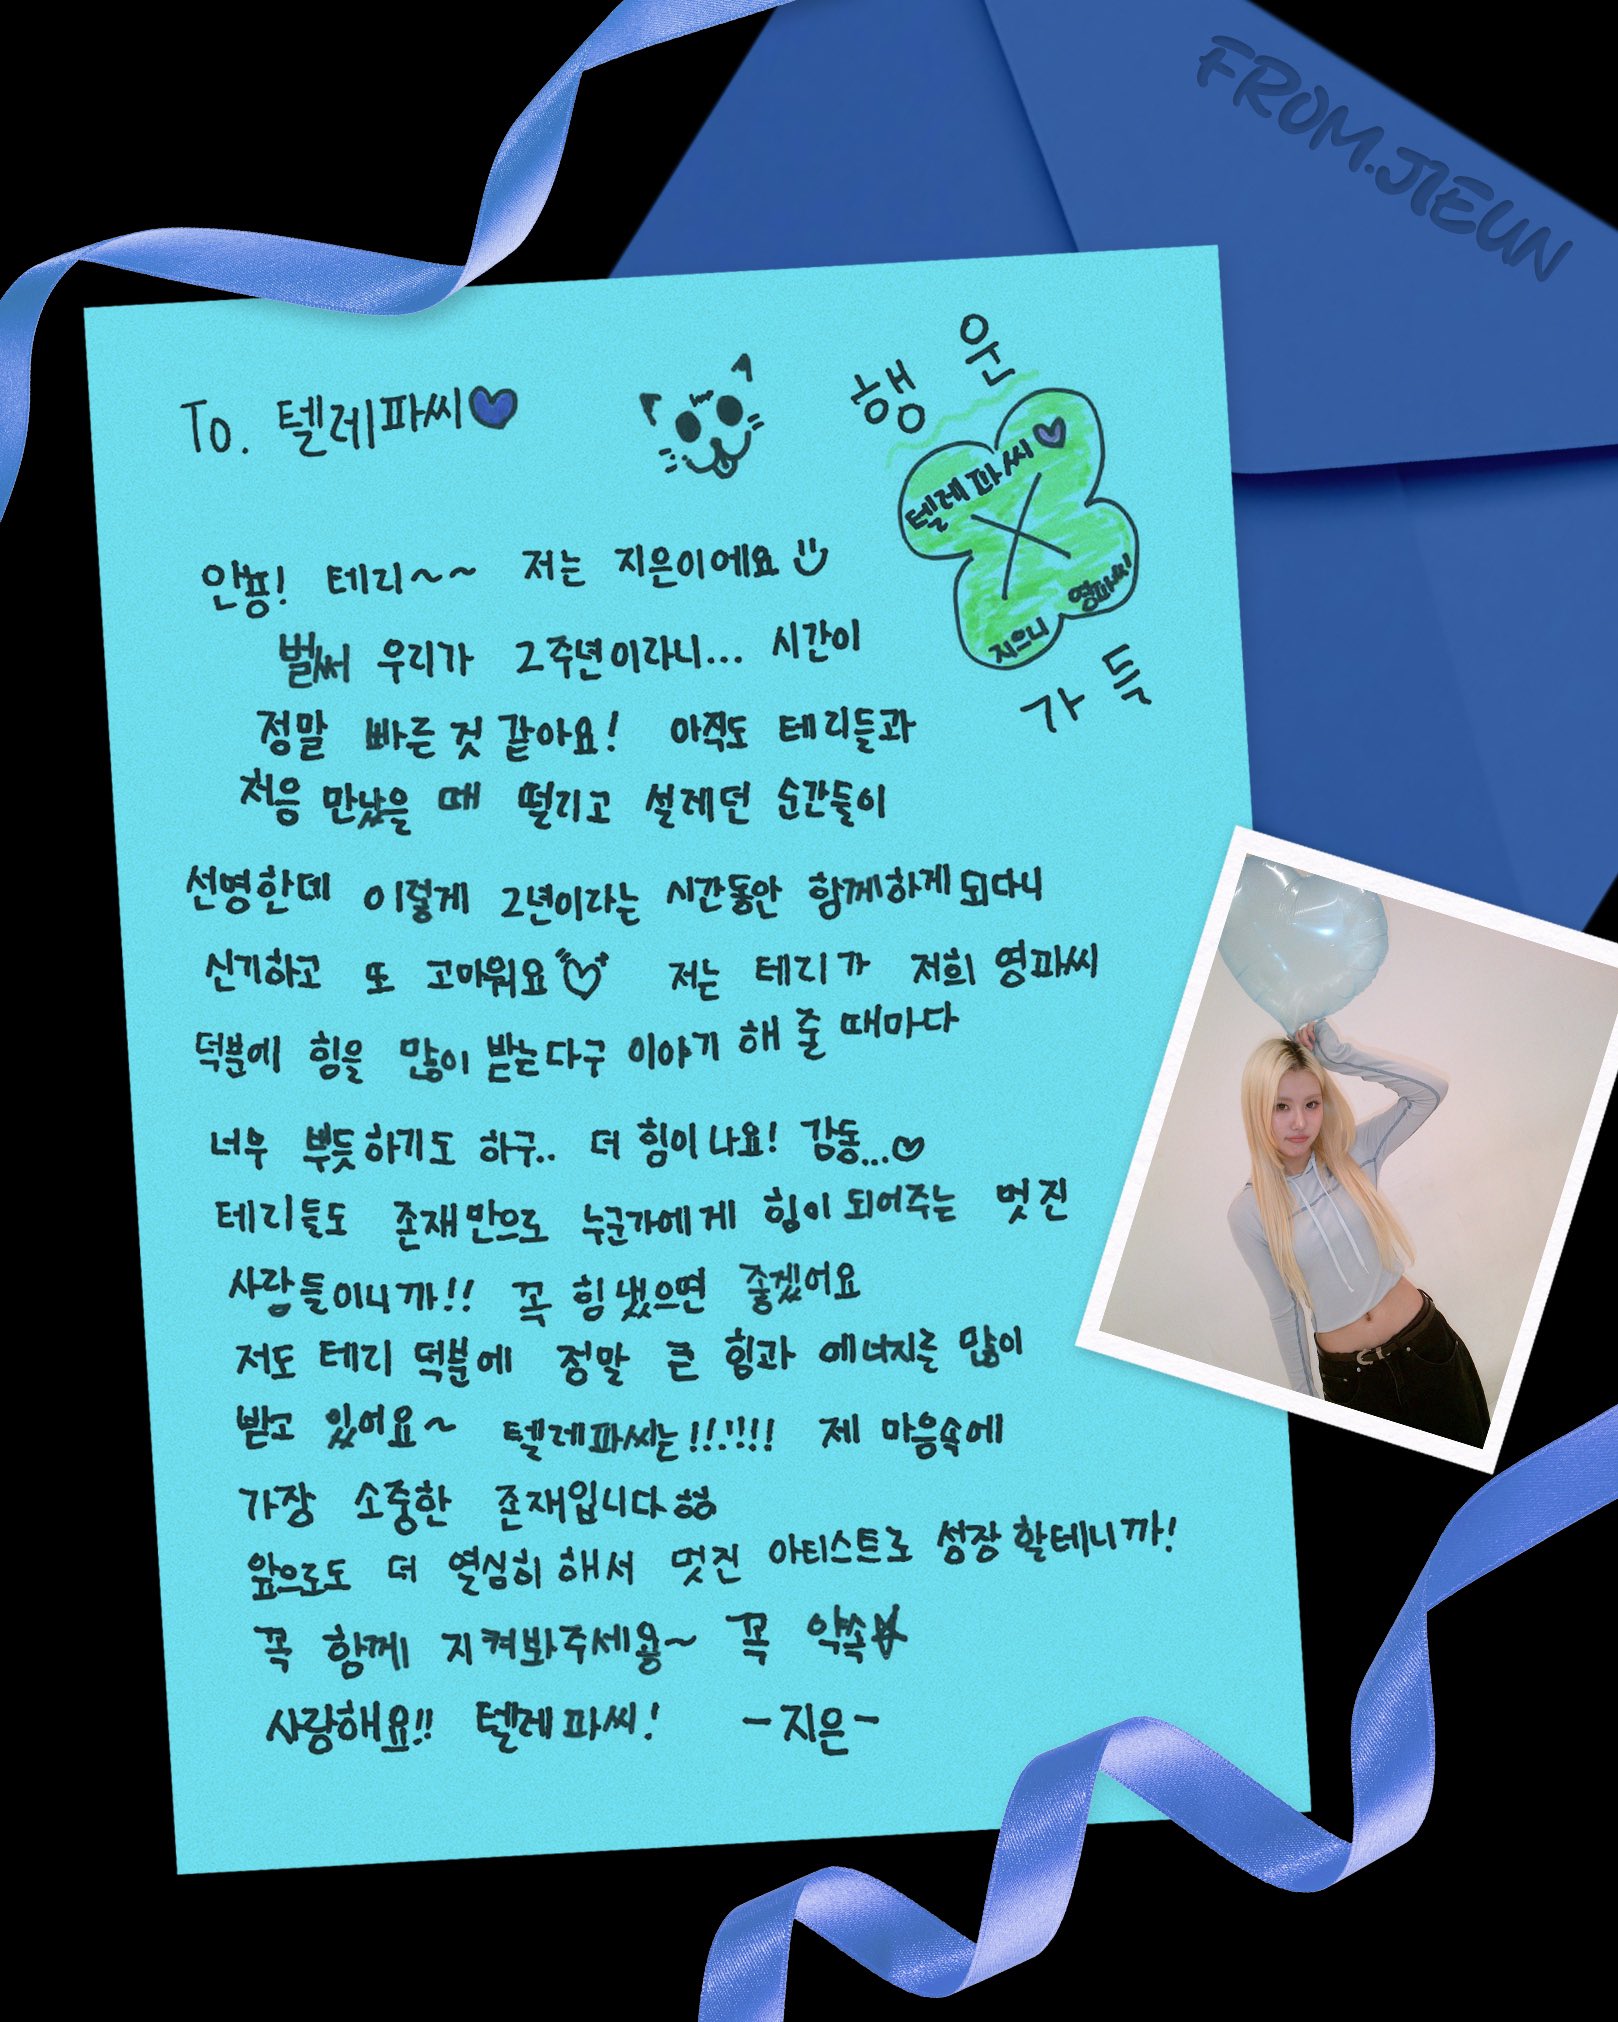 FROM.JIEUN
To. 텔레파씨
행 운
텔레파씨
영파씨
지으니
가득
안뇽! 테리~~ 저는 지은이에요
벌써 우리가 2주년이라니... 시간이
정말 빠른 것 같아요! 아직도 테리들과
처음 만났을 때 떨리고 설레던 순간들이
선명한데 이렇게 2년이라는 시간동안 함께하게 되다니
신기하고 또 고마워요 저는 테리가 저희 영파씨
덕분에 힘을 많이 받는다구 이야기 해 줄 때마다
너무 뿌듯하기도 하구.. 더 힘이 나요! 감동...
테리들도 존재만으로 누군가에게 힘이 되어주는 멋진
사람들이니까!! 꼭 힘 냈으면 좋겠어요
저도 테리 덕분에 정말 큰 힘과 에너지를 많이
받고 있어요~ 텔레파씨는!!!!!! 제 마음속에
가장 소중한 존재입니다ㅎㅎ
앞으로도 더 열심히 해서 멋진 아티스트로 성장 할테니까!
꼭 함께 지켜봐주세용~ 꼭 약속
사랑해요!! 텔레파씨! -지은-